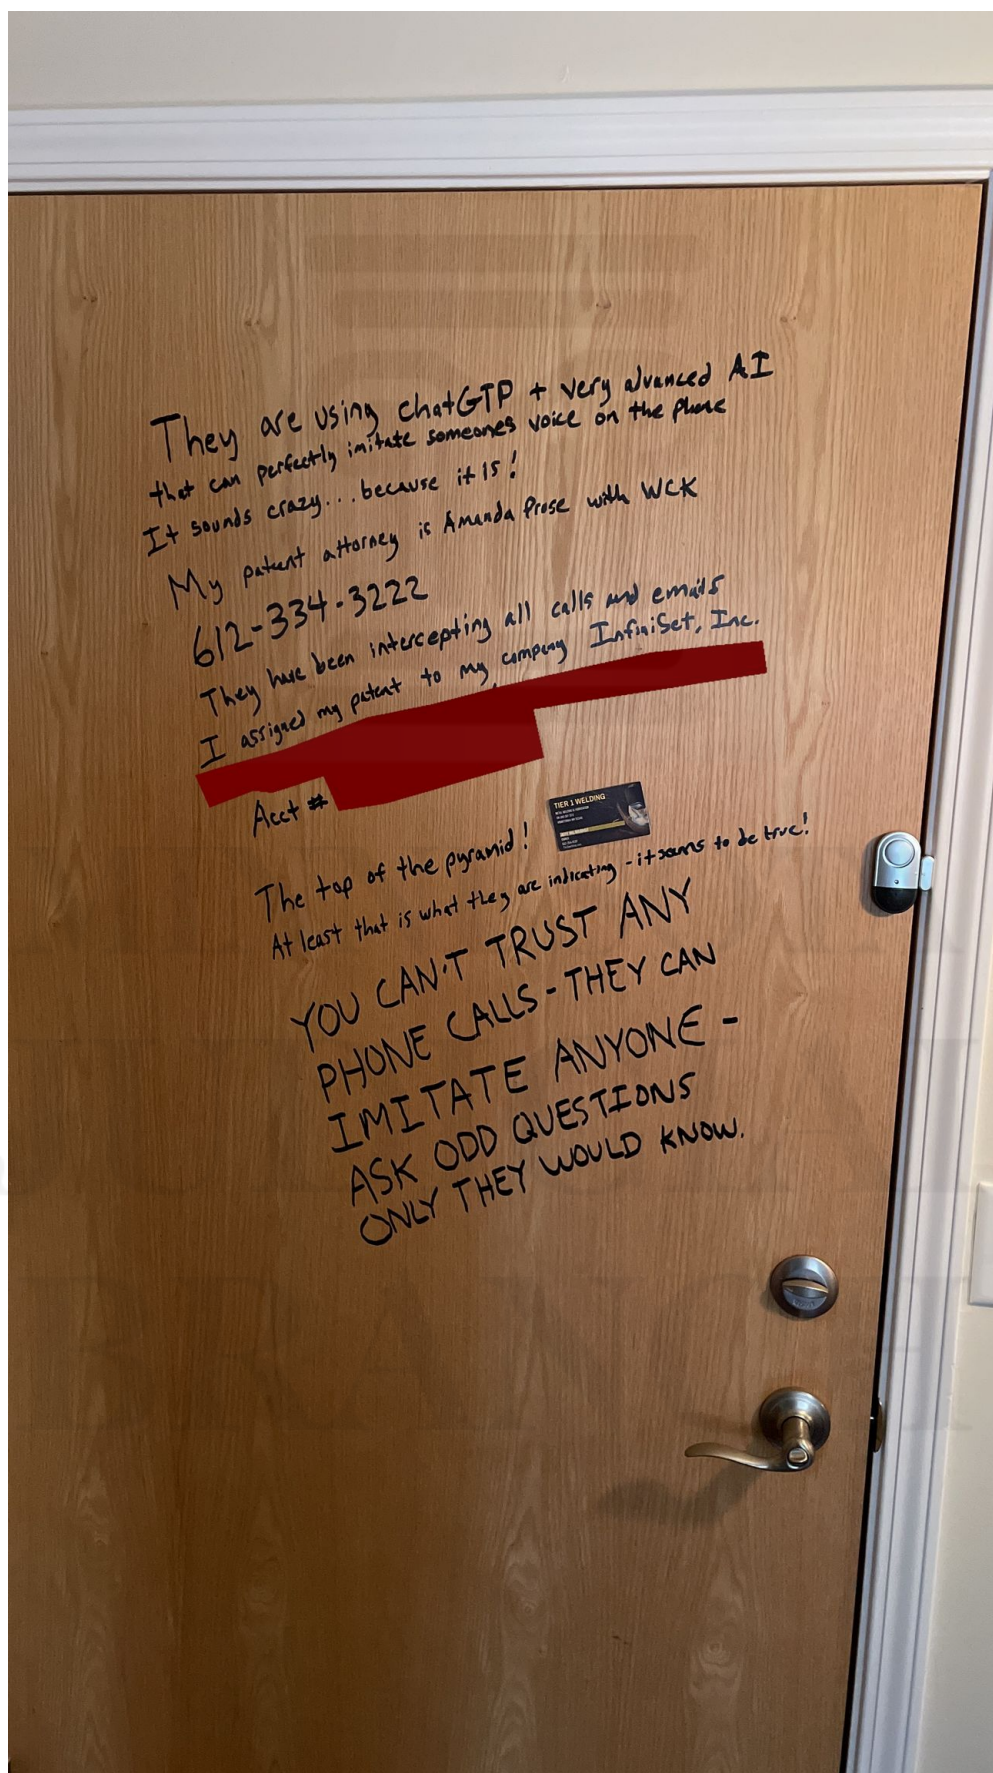 They are using chatGTP + very advanced AI
that can perfectly imitate someones voice on the phone
It sounds crazy... because it is!
My patent attorney is Amanda Prose with WCK
612-334-3222
They have been intercepting all calls and emails
I assigned my patent to my company InfiniSet, Inc.
Acct #
TIER 1 WELDING
The top of the pyramid!
At least that is what they are indicating - it seems to be true!
YOU CAN'T TRUST ANY
PHONE CALLS - THEY CAN
IMITATE ANYONE -
ASK ODD QUESTIONS
ONLY THEY WOULD KNOW.